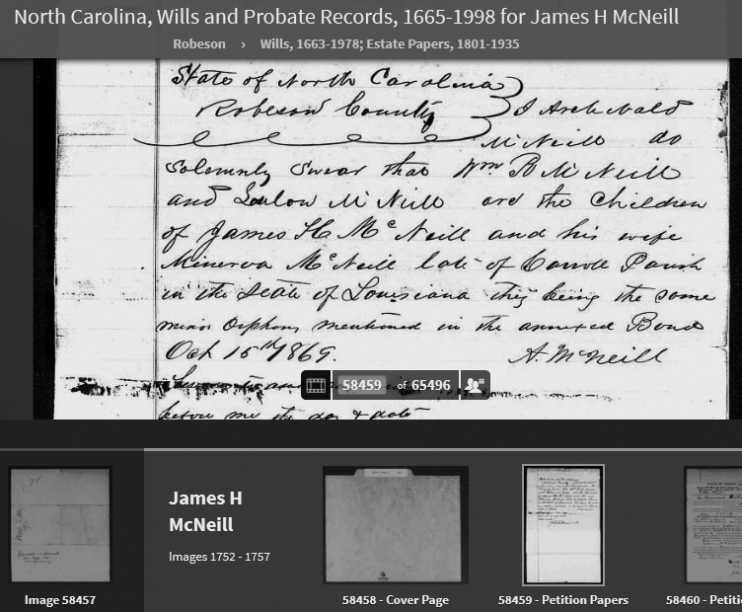 North Carolina, Wills and Probate Records, 1665-1998 for James H McNeill
Robeson › Wills, 1663-1978; Estate Papers, 1801-1935
State of North Carolina
Robeson County } I Archibald
McNeill do
solemnly swear that Wm B McNeill
and McNeill are the Children
of James H McNeill and his wife
Minerva McNeill late of Carroll Parish
in the State of Louisiana they being the same
minor Orphans mentioned in the annexed Bond
Oct 15th 1869. A. McNeill
58459 of 65496
before me the day & date
James H
McNeill
Images 1752 - 1757
Image 58457
58458 - Cover Page
58459 - Petition Papers
58460 - Petiti